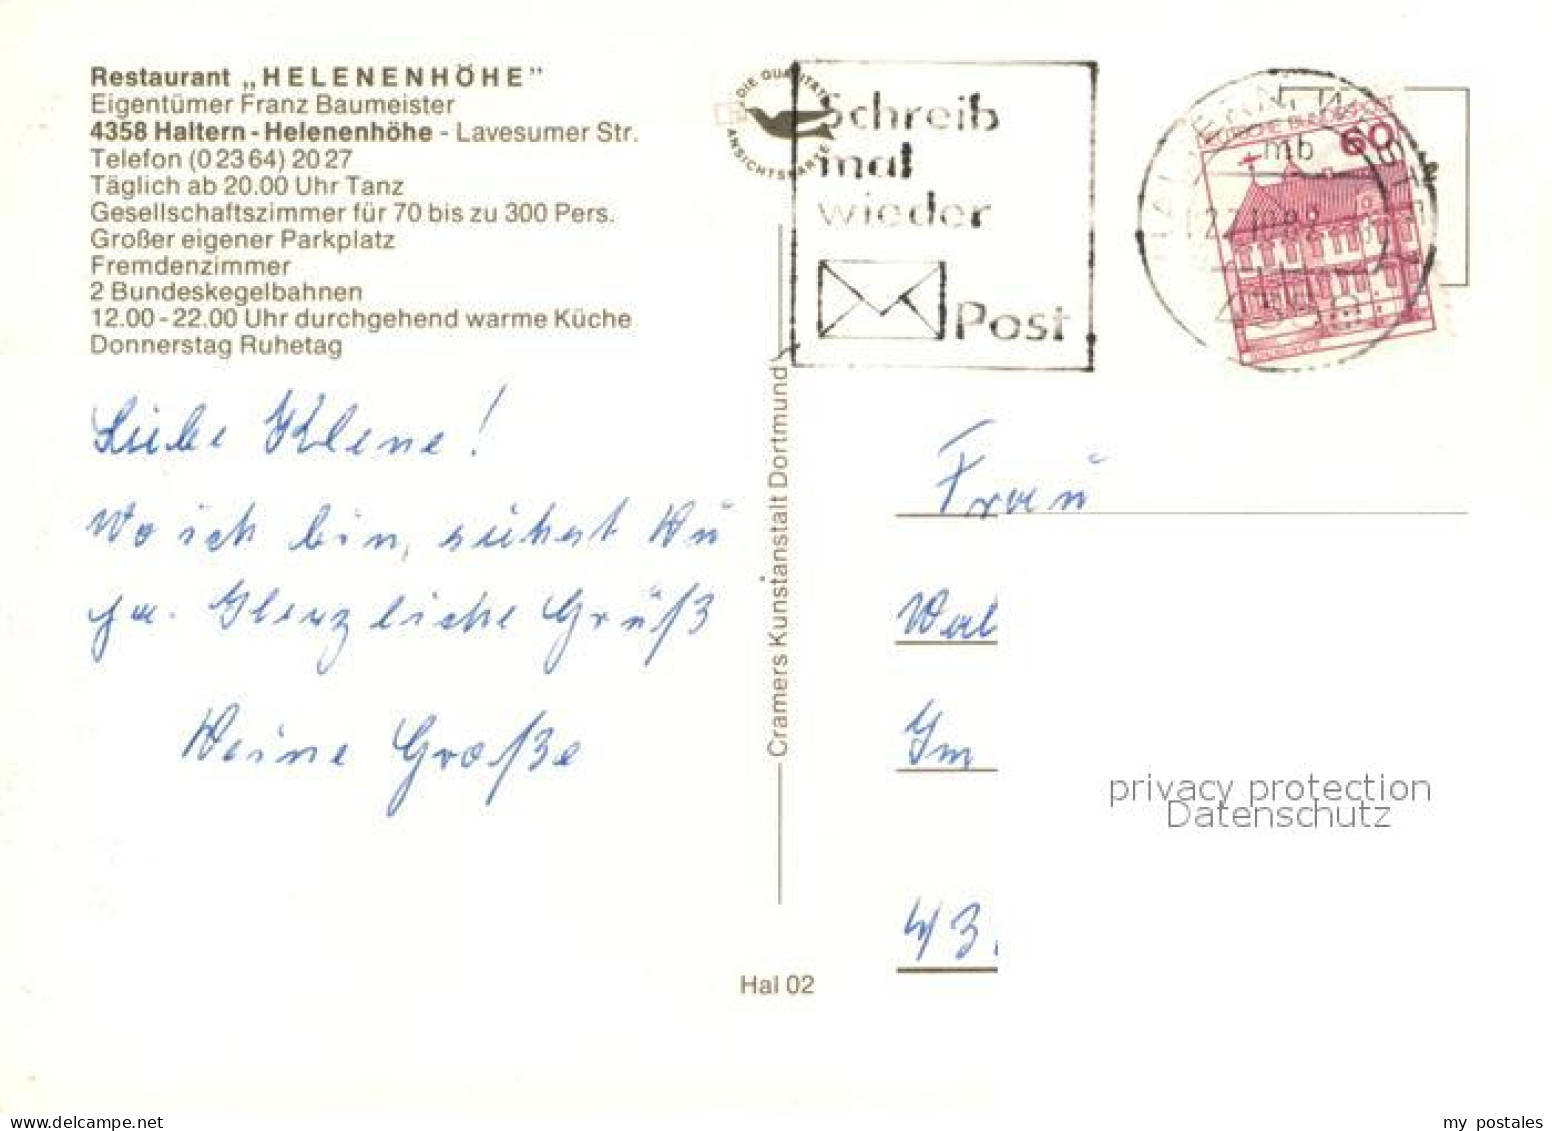 Restaurant „HELENENHÖHE”
Eigentümer Franz Baumeister
4358 Haltern - Helenenhöhe - Lavesumer Str.
Telefon (0 23 64) 20 27
Täglich ab 20.00 Uhr Tanz
Gesellschaftszimmer für 70 bis zu 300 Pers.
Großer eigener Parkplatz
Fremdenzimmer
2 Bundeskegelbahnen
12.00 - 22.00 Uhr durchgehend warme Küche
Donnerstag Ruhetag
Liebe Klene!
Wo ich bin, siehst Du
ja. Herzliche Grüß
Deine Große
Cramers Kunstanstalt Dortmund
Hal 02
DIE QUALITÄTS
ANSICHTSKARTE
Schreib
mal
wieder
Post
DEUTSCHE BUNDESPOST
60
mb
4358
Frau
Wal
Gm
43.
privacy protection
Datenschutz
delcampe.net
my postales